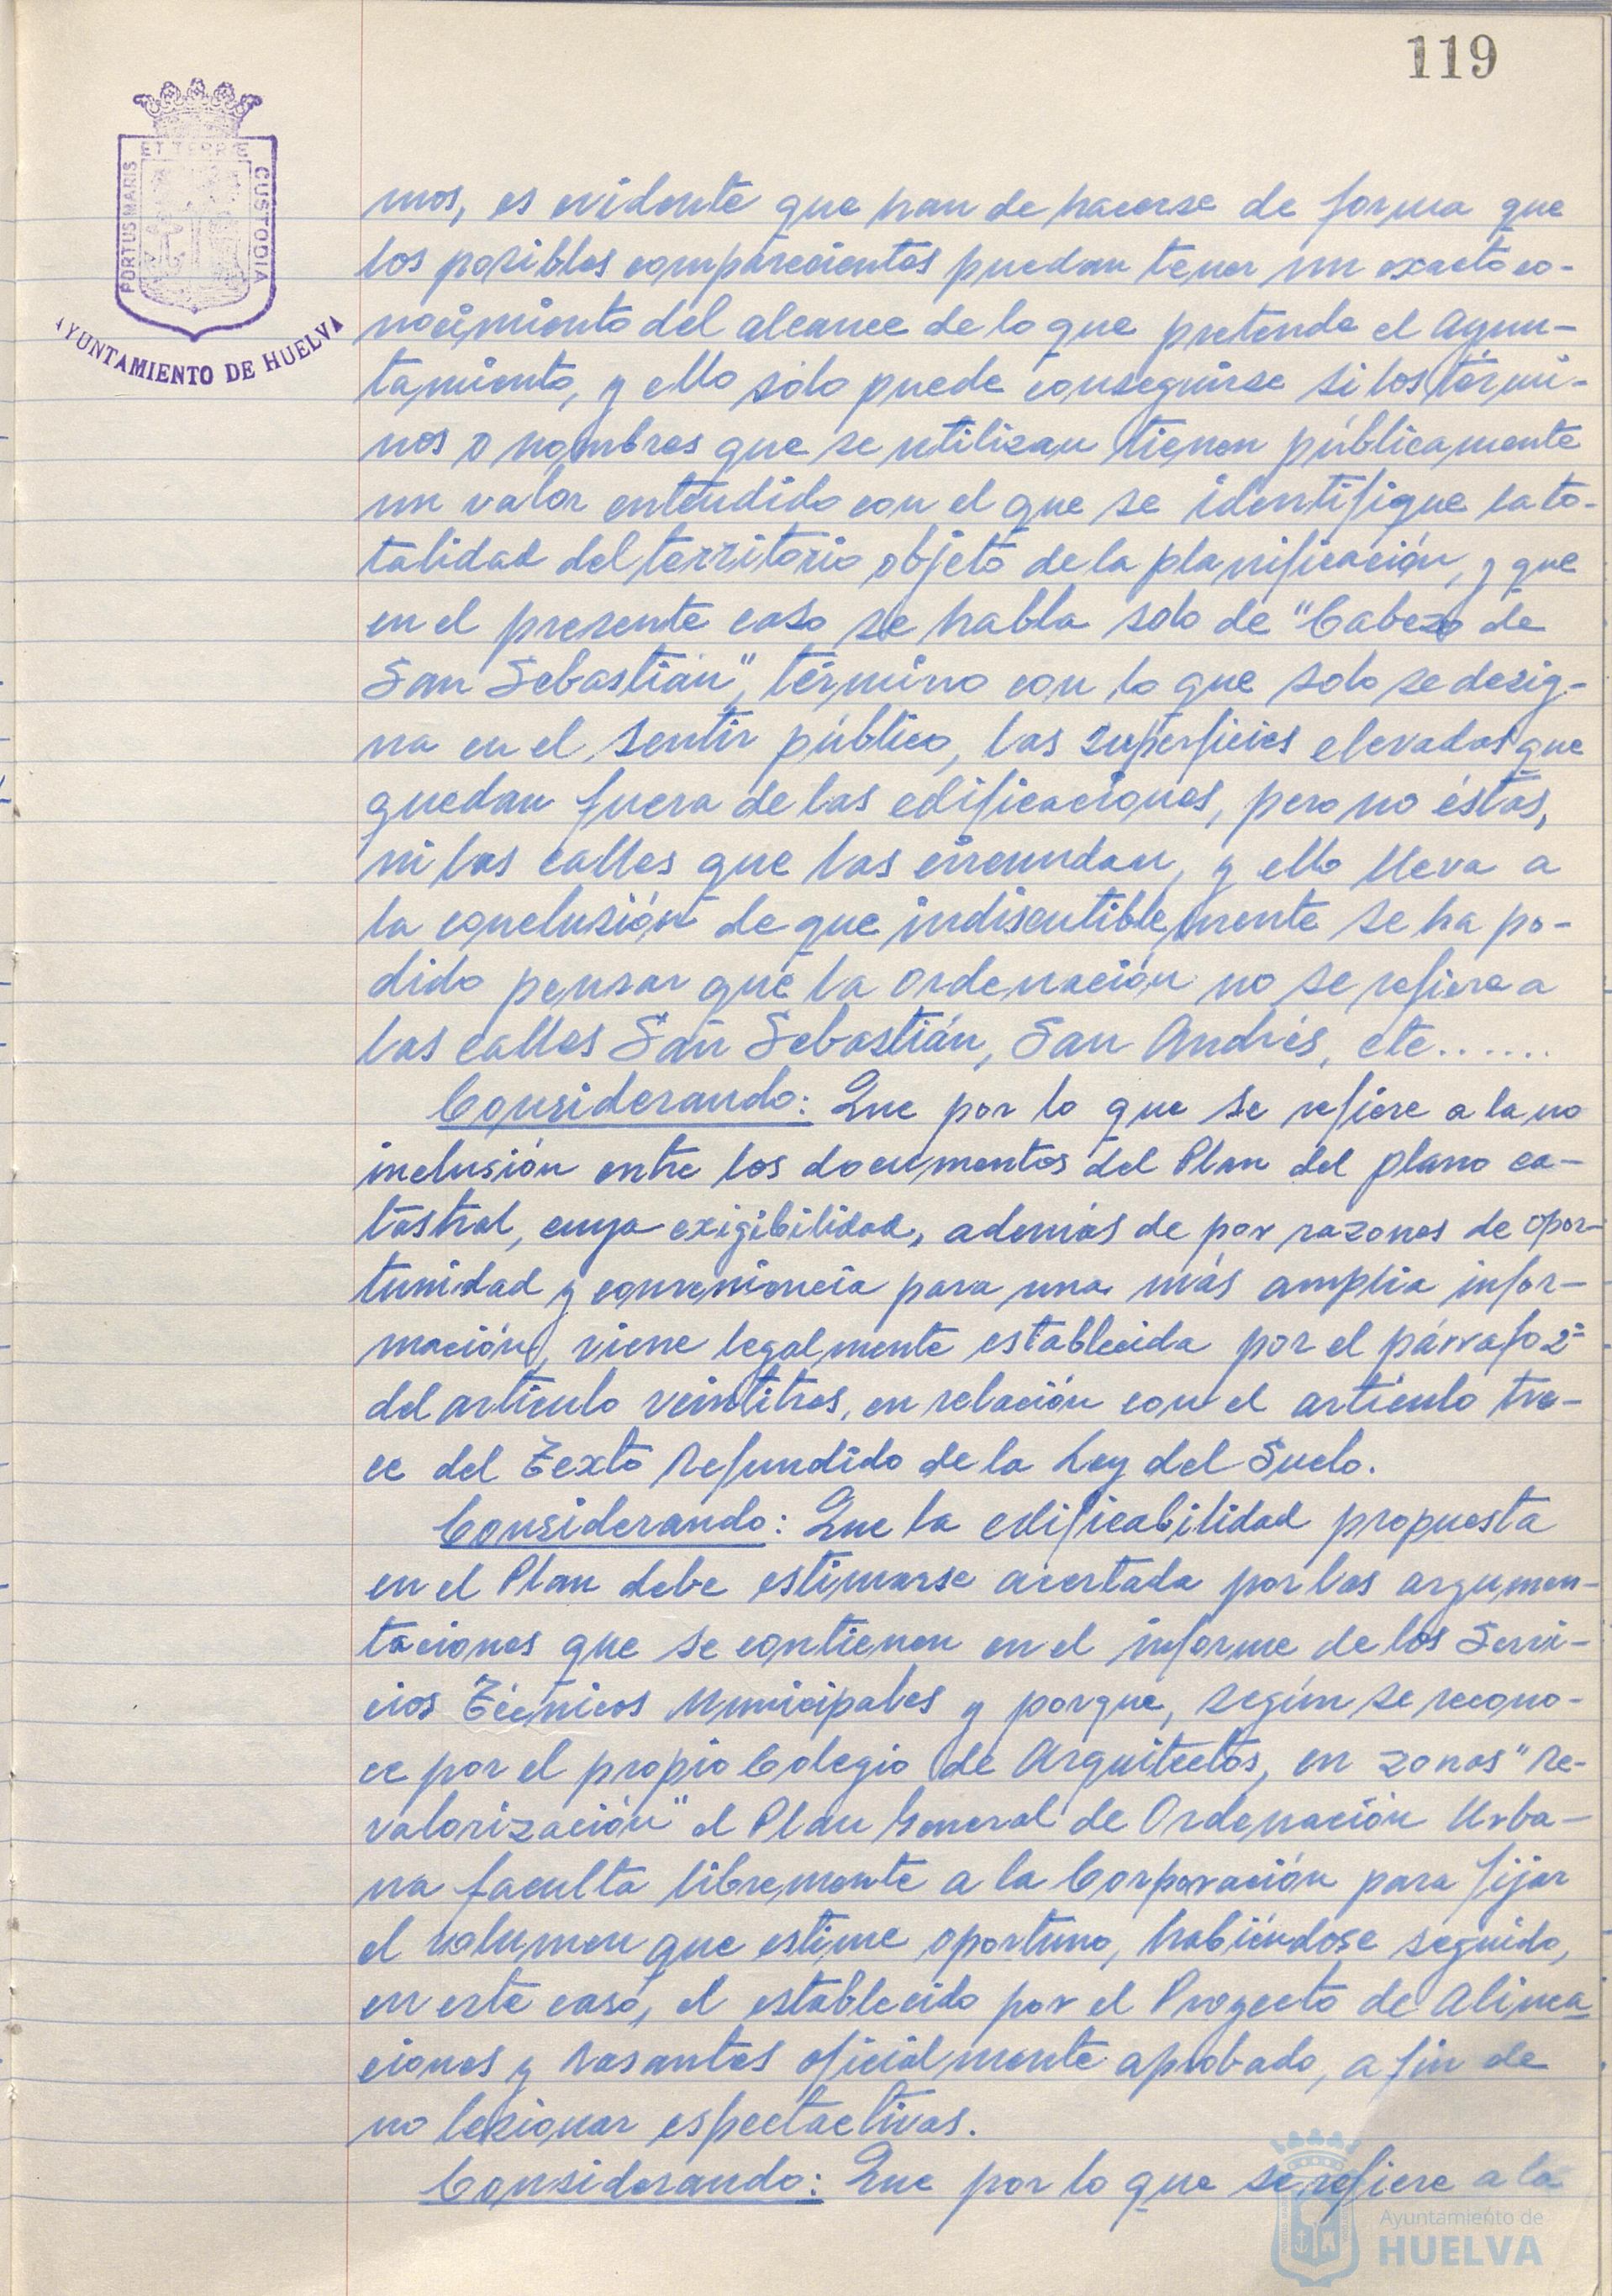 119
PORTUS MARIS ET TERRÆ CUSTODIA
AYUNTAMIENTO DE HUELVA
mos, es evidente que han de hacerse de forma que
los posibles comparecientes puedan tener un exacto co-
nocimiento del alcance de lo que pretende el Ayun-
tamiento, y ello solo puede conseguirse si los térmi-
nos o nombres que se utilizan tienen públicamente
un valor entendido con el que se identifique la to-
talidad del territorio objeto de la planificación, y que
en el presente caso se habla solo de "Cabezo de
San Sebastián", término con lo que solo se desig-
na en el sentir público, las superficies elevadas que
quedan fuera de las edificaciones, pero no éstas,
ni las calles que las circundan, y ello lleva a
la conclusión de que indiscutiblemente se ha po-
dido pensar que la Ordenación no se refiere a
las calles San Sebastián, San Andrés, etc......
Considerando: Que por lo que se refiere a la no
inclusión entre los documentos del Plan del plano ca-
tastral, cuya exigibilidad, además de por razones de opor-
tunidad y conveniencia para una más amplia infor-
mación, viene legalmente establecida por el párrafo 2º
del artículo veintitres, en relación con el artículo tre-
ce del Texto Refundido de la Ley del Suelo.
Considerando: Que la edificabilidad propuesta
en el Plan debe estimarse acertada por las argumen-
taciones que se contienen en el informe de los Servi-
cios Técnicos Municipales y porque, según se recono-
ce por el propio Colegio de Arquitectos, en zonas "Re-
valorización" el Plan General de Ordenación Urba-
na faculta libremente a la Corporación para fijar
el volumen que estime oportuno, habiéndose seguido,
en este caso, el establecido por el Proyecto de Alinea-
ciones y Rasantes oficialmente aprobado, a fin de
no lesionar espectactivas.
Considerando: Que por lo que se refiere a la
Ayuntamiento de
HUELVA